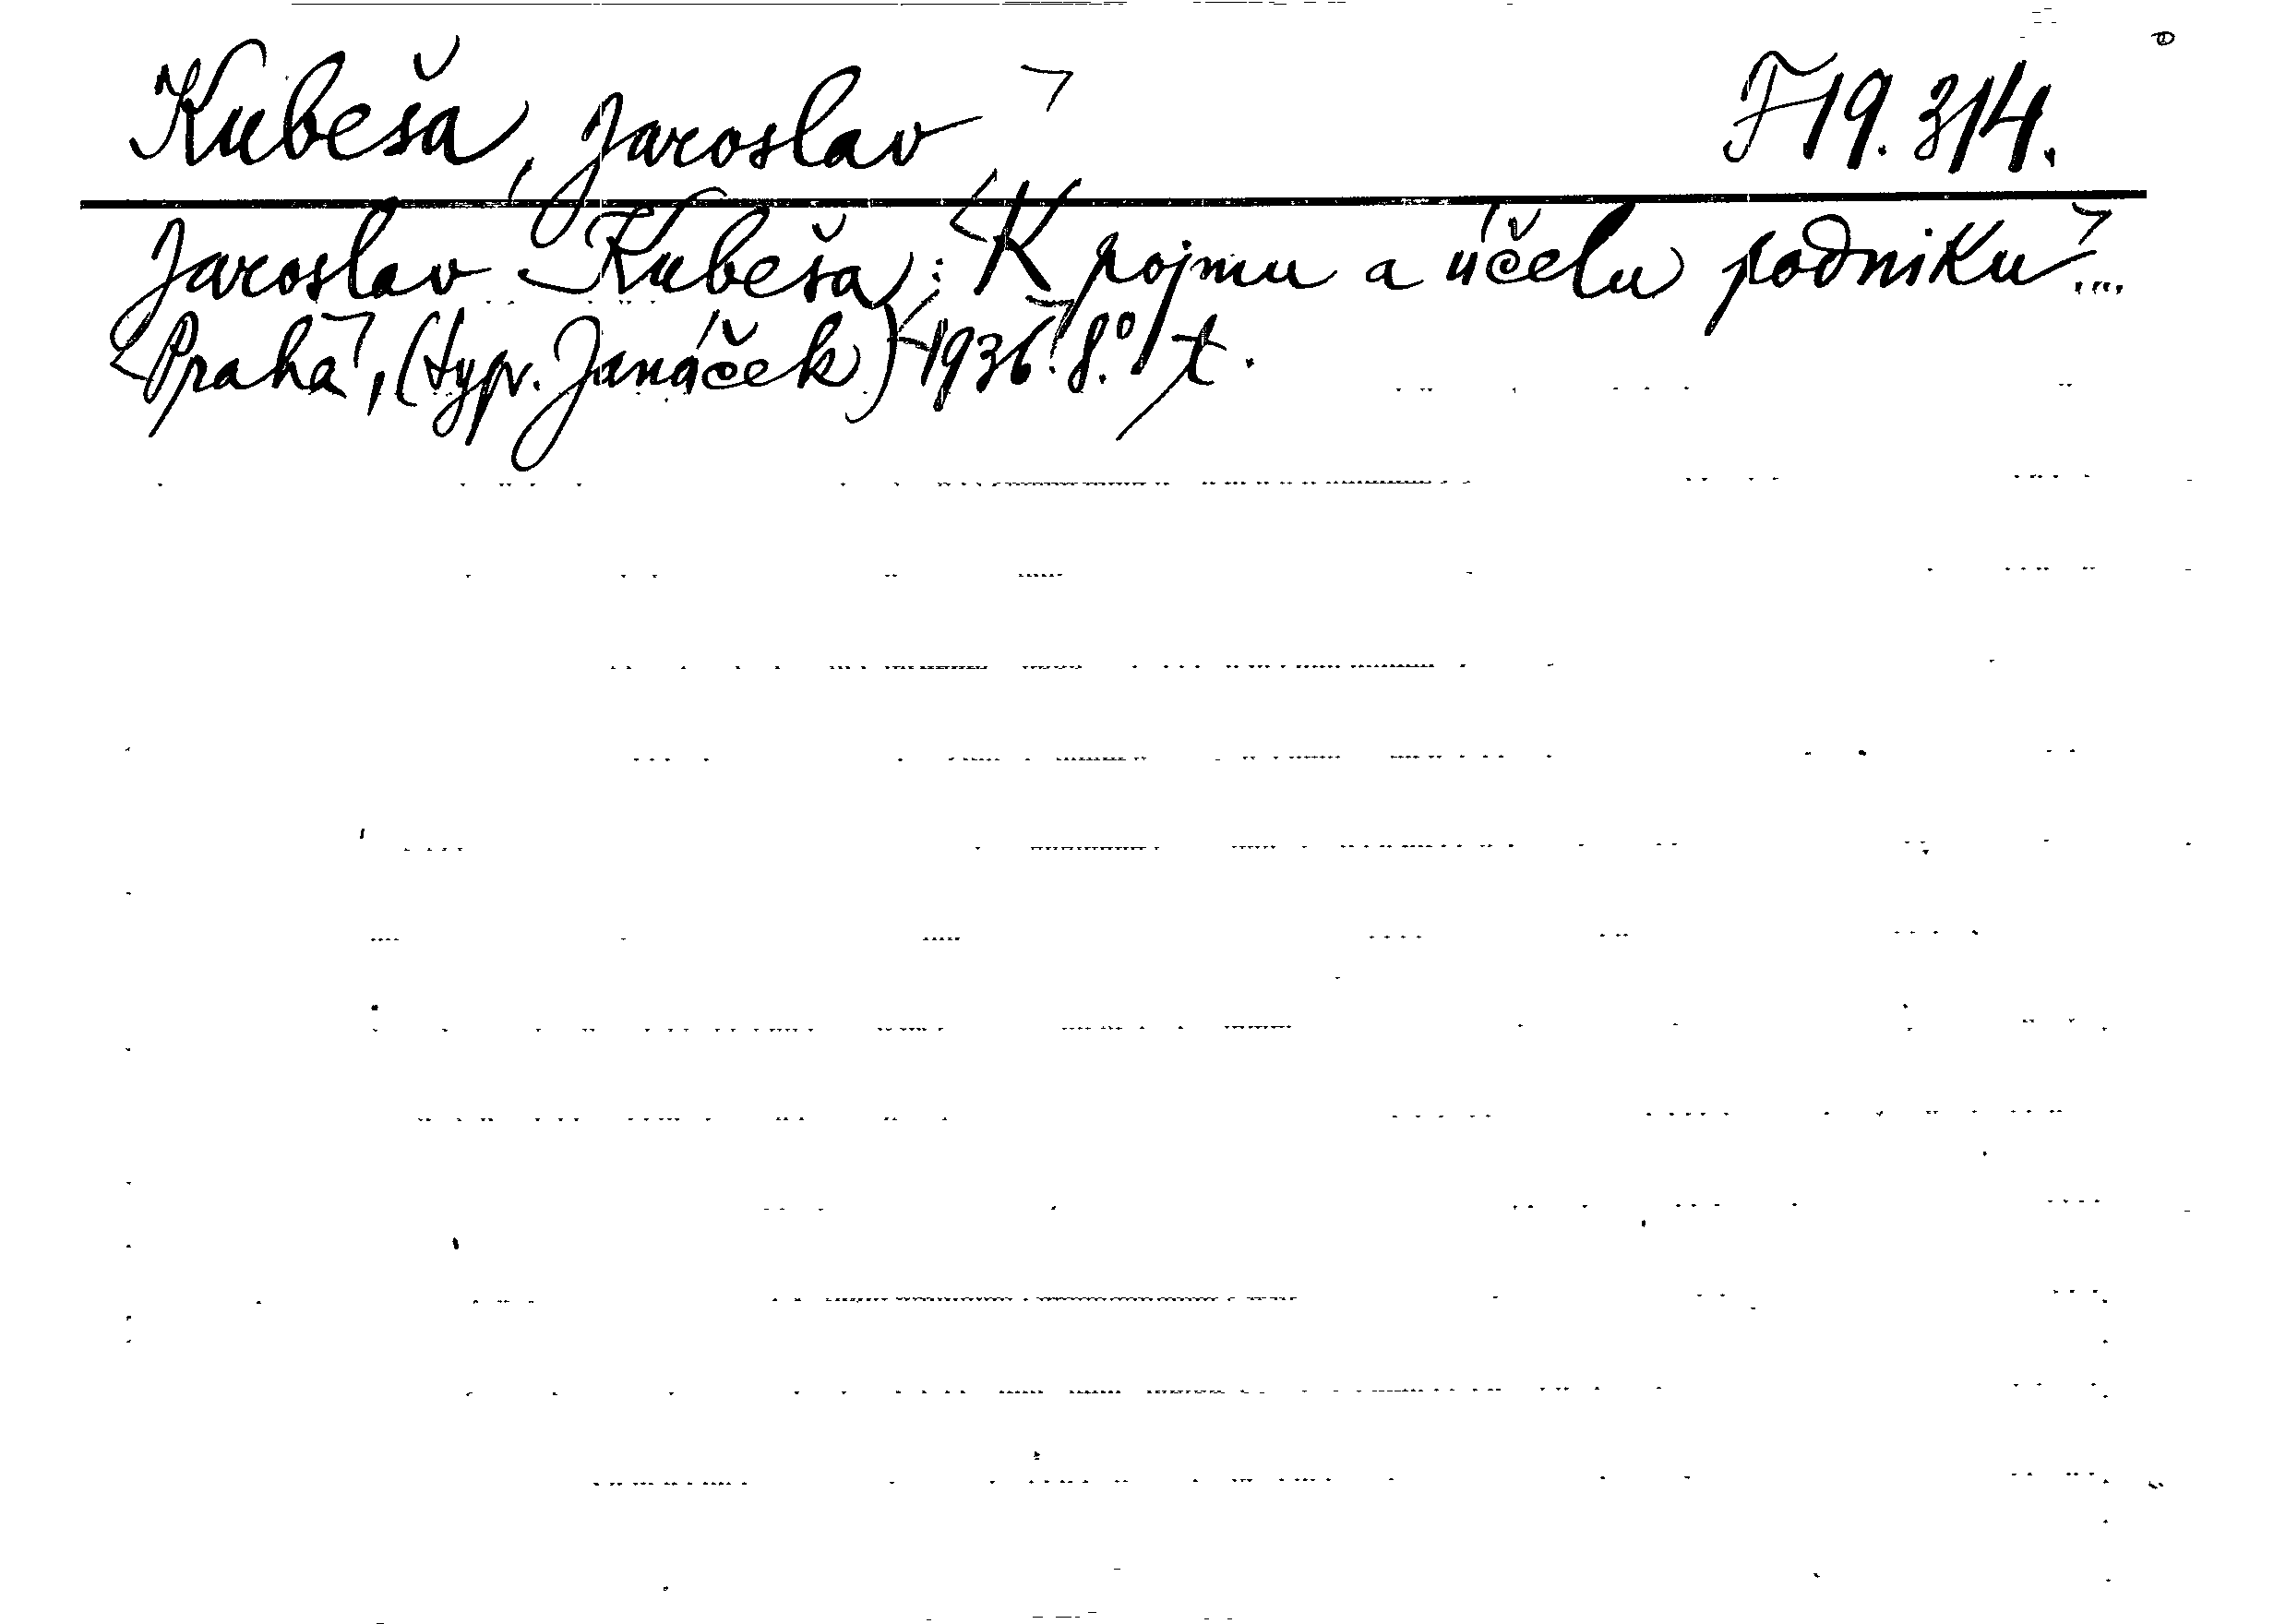 Kubeša, Jaroslav F 19.314.
Jaroslav Kubeša: K pojmu a účelu podniku...
Praha, (typ. Janáček) 1936. 8.° t.